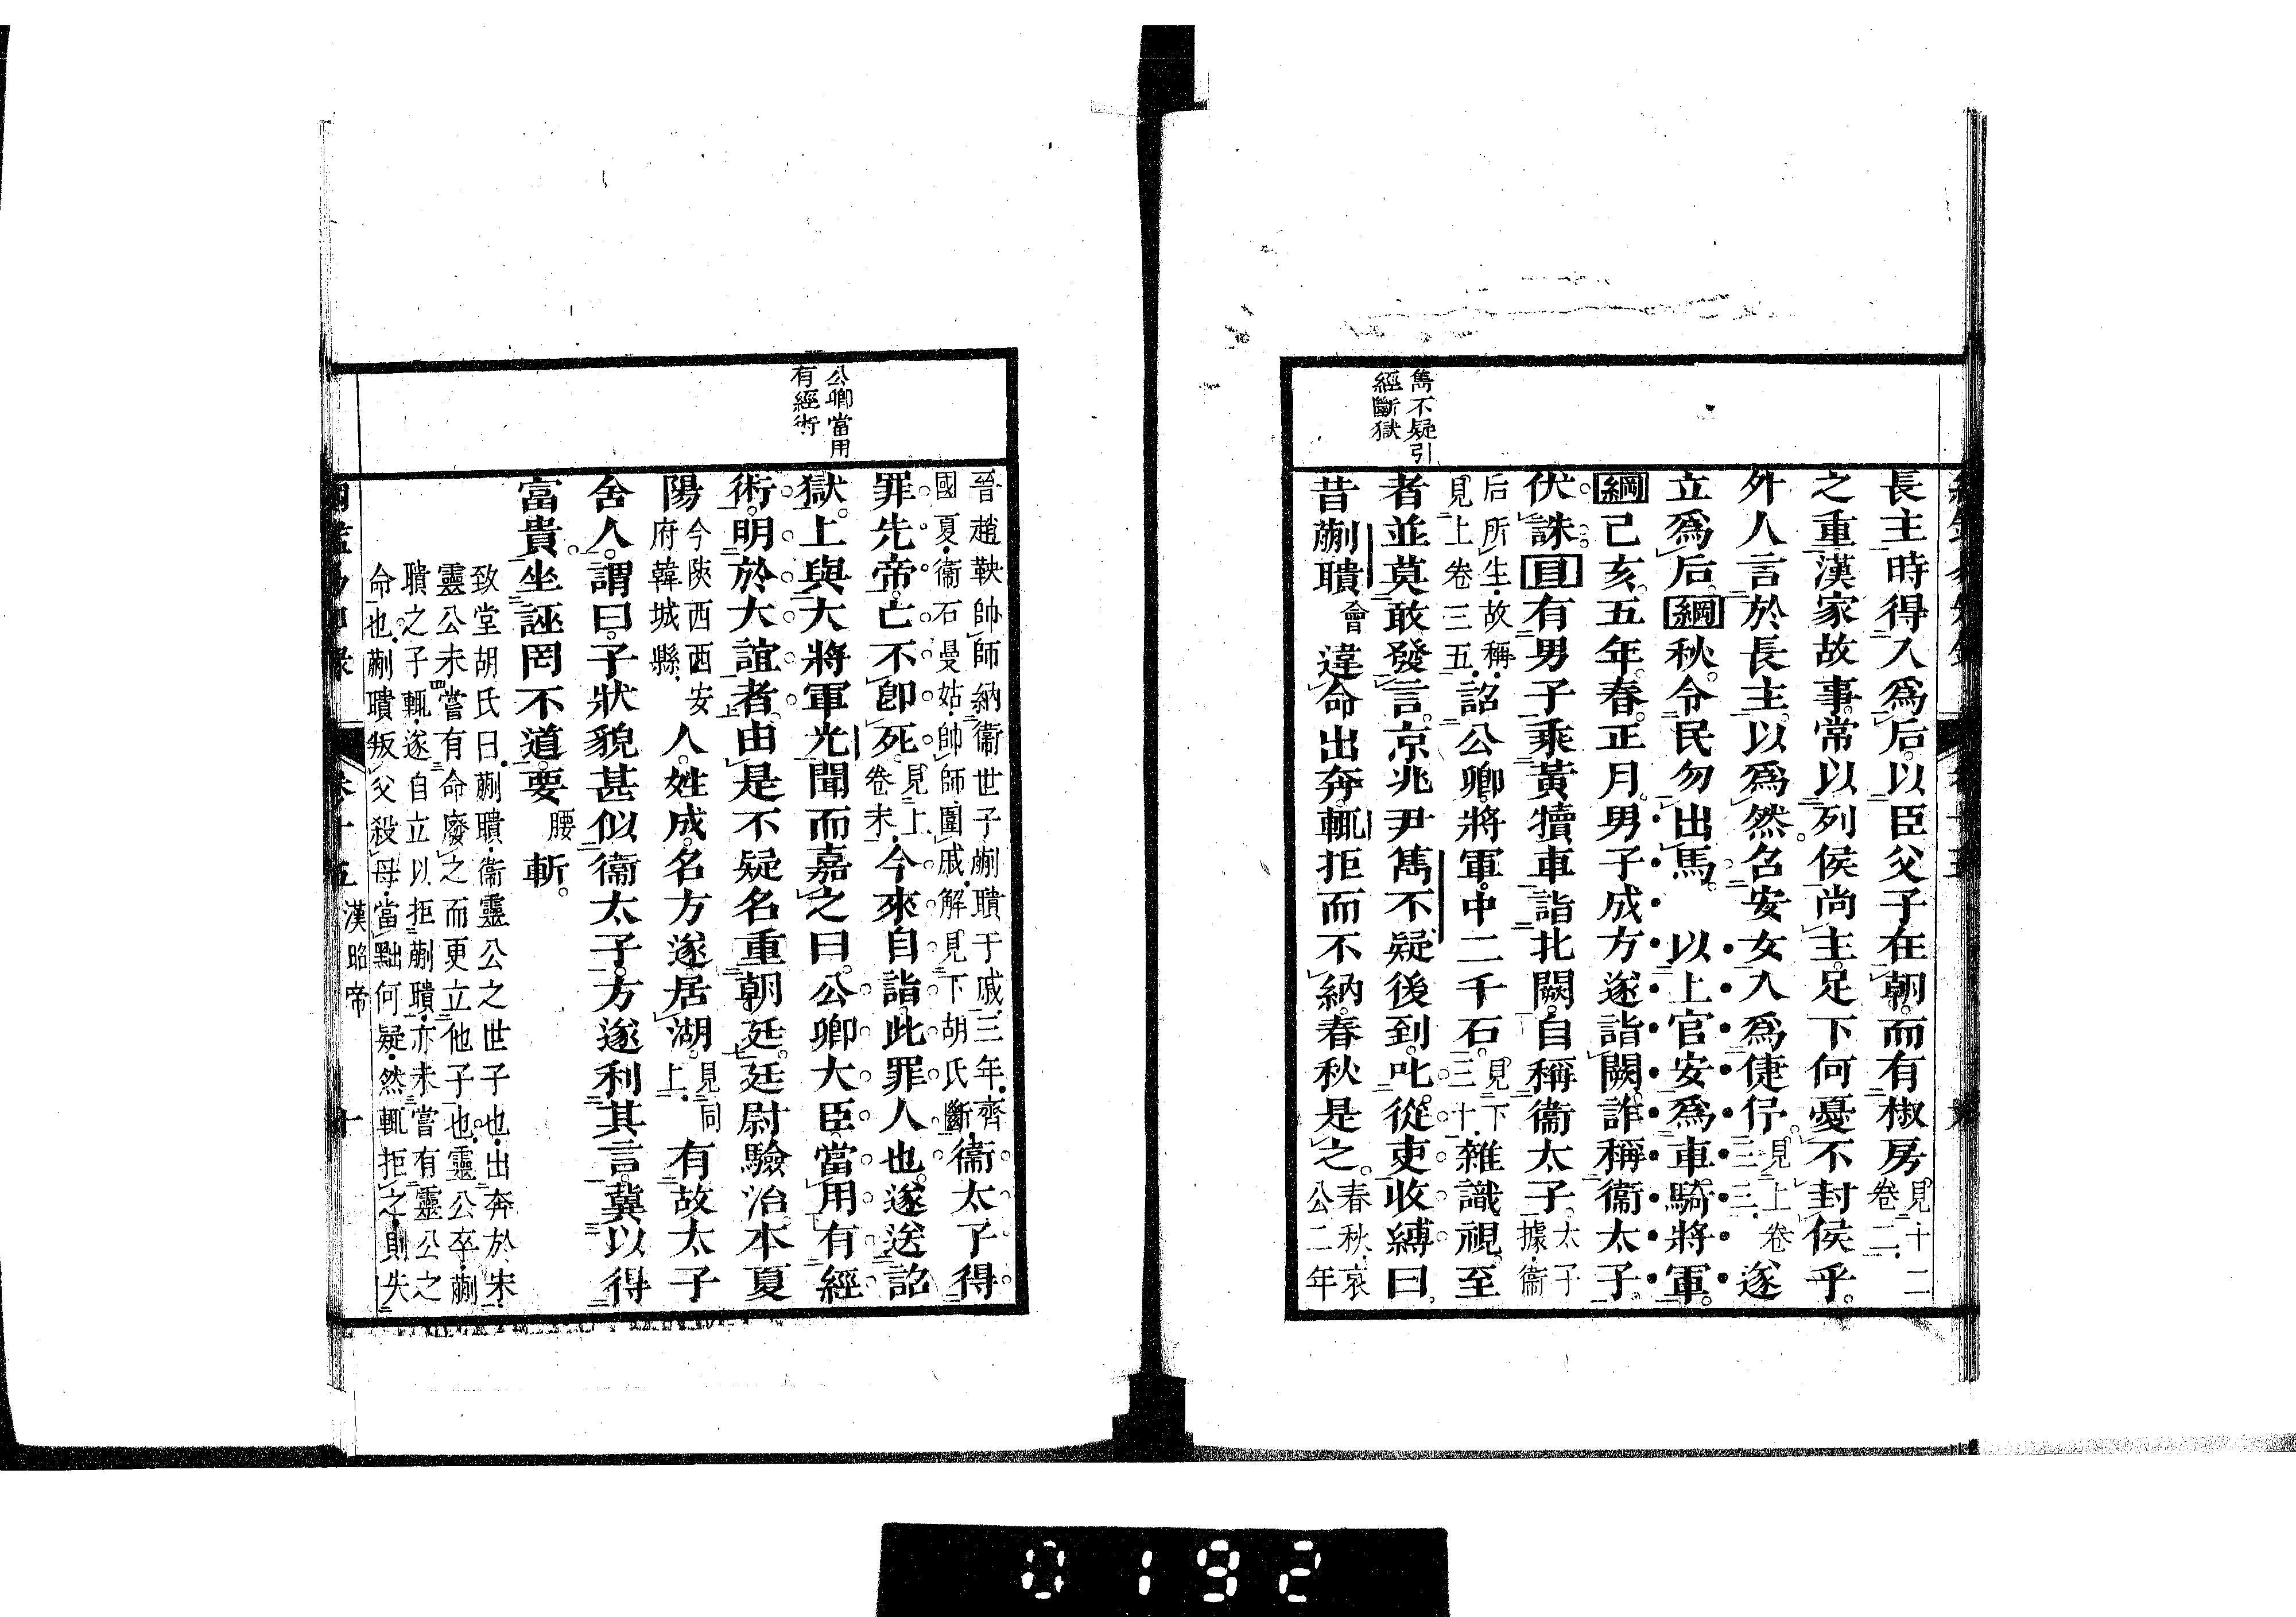 雋不疑引
經斷獄
長主時得入爲后以臣父子在朝而有椒房見十二卷二
之重漢家故事常以列侯尚主足下何憂不封侯乎
外人言於長主以爲然召安女入爲倢伃見上卷三三遂
立爲后綱秋令民勿出馬以上官安爲車騎將軍
綱己亥五年春正月男子成方遂詣闕詐稱衞太子
伏誅目有男子乘黃犢車詣北闕自稱衞太子太子據衞
后所生故稱見上卷三五詔公卿將軍中二千石見下三十雜識視至
者並莫敢發言京兆尹雋不疑後到叱從吏收縛曰
昔蒯聵會違命出奔輒拒而不納春秋是之春秋哀公二年
公卿當用
有經術
晉趙鞅帥師納衞世子蒯聵于戚三年齊國夏衞石曼姑帥師圍戚解見下胡氏斷衞太子得
罪先帝亡不卽死見上卷末今來自詣此罪人也遂送詔
獄上與大將軍光聞而嘉之曰公卿大臣當用有經
術明於大誼者由是不疑名重朝廷廷尉驗治本夏
陽今陝西西安府韓城縣人姓成名方遂居湖見同上有故太子
舍人謂曰子狀貌甚似衞太子方遂利其言冀以得
富貴坐誣罔不道要腰斬
致堂胡氏曰蒯聵衞靈公之世子也出奔於宋
靈公未嘗有命廢之而更立他子也靈公卒蒯
聵之子輒遂自立以拒蒯聵亦未嘗有靈公之
命也蒯聵叛父殺母當黜何疑然輒拒之則失
卷十五 漢昭帝 十